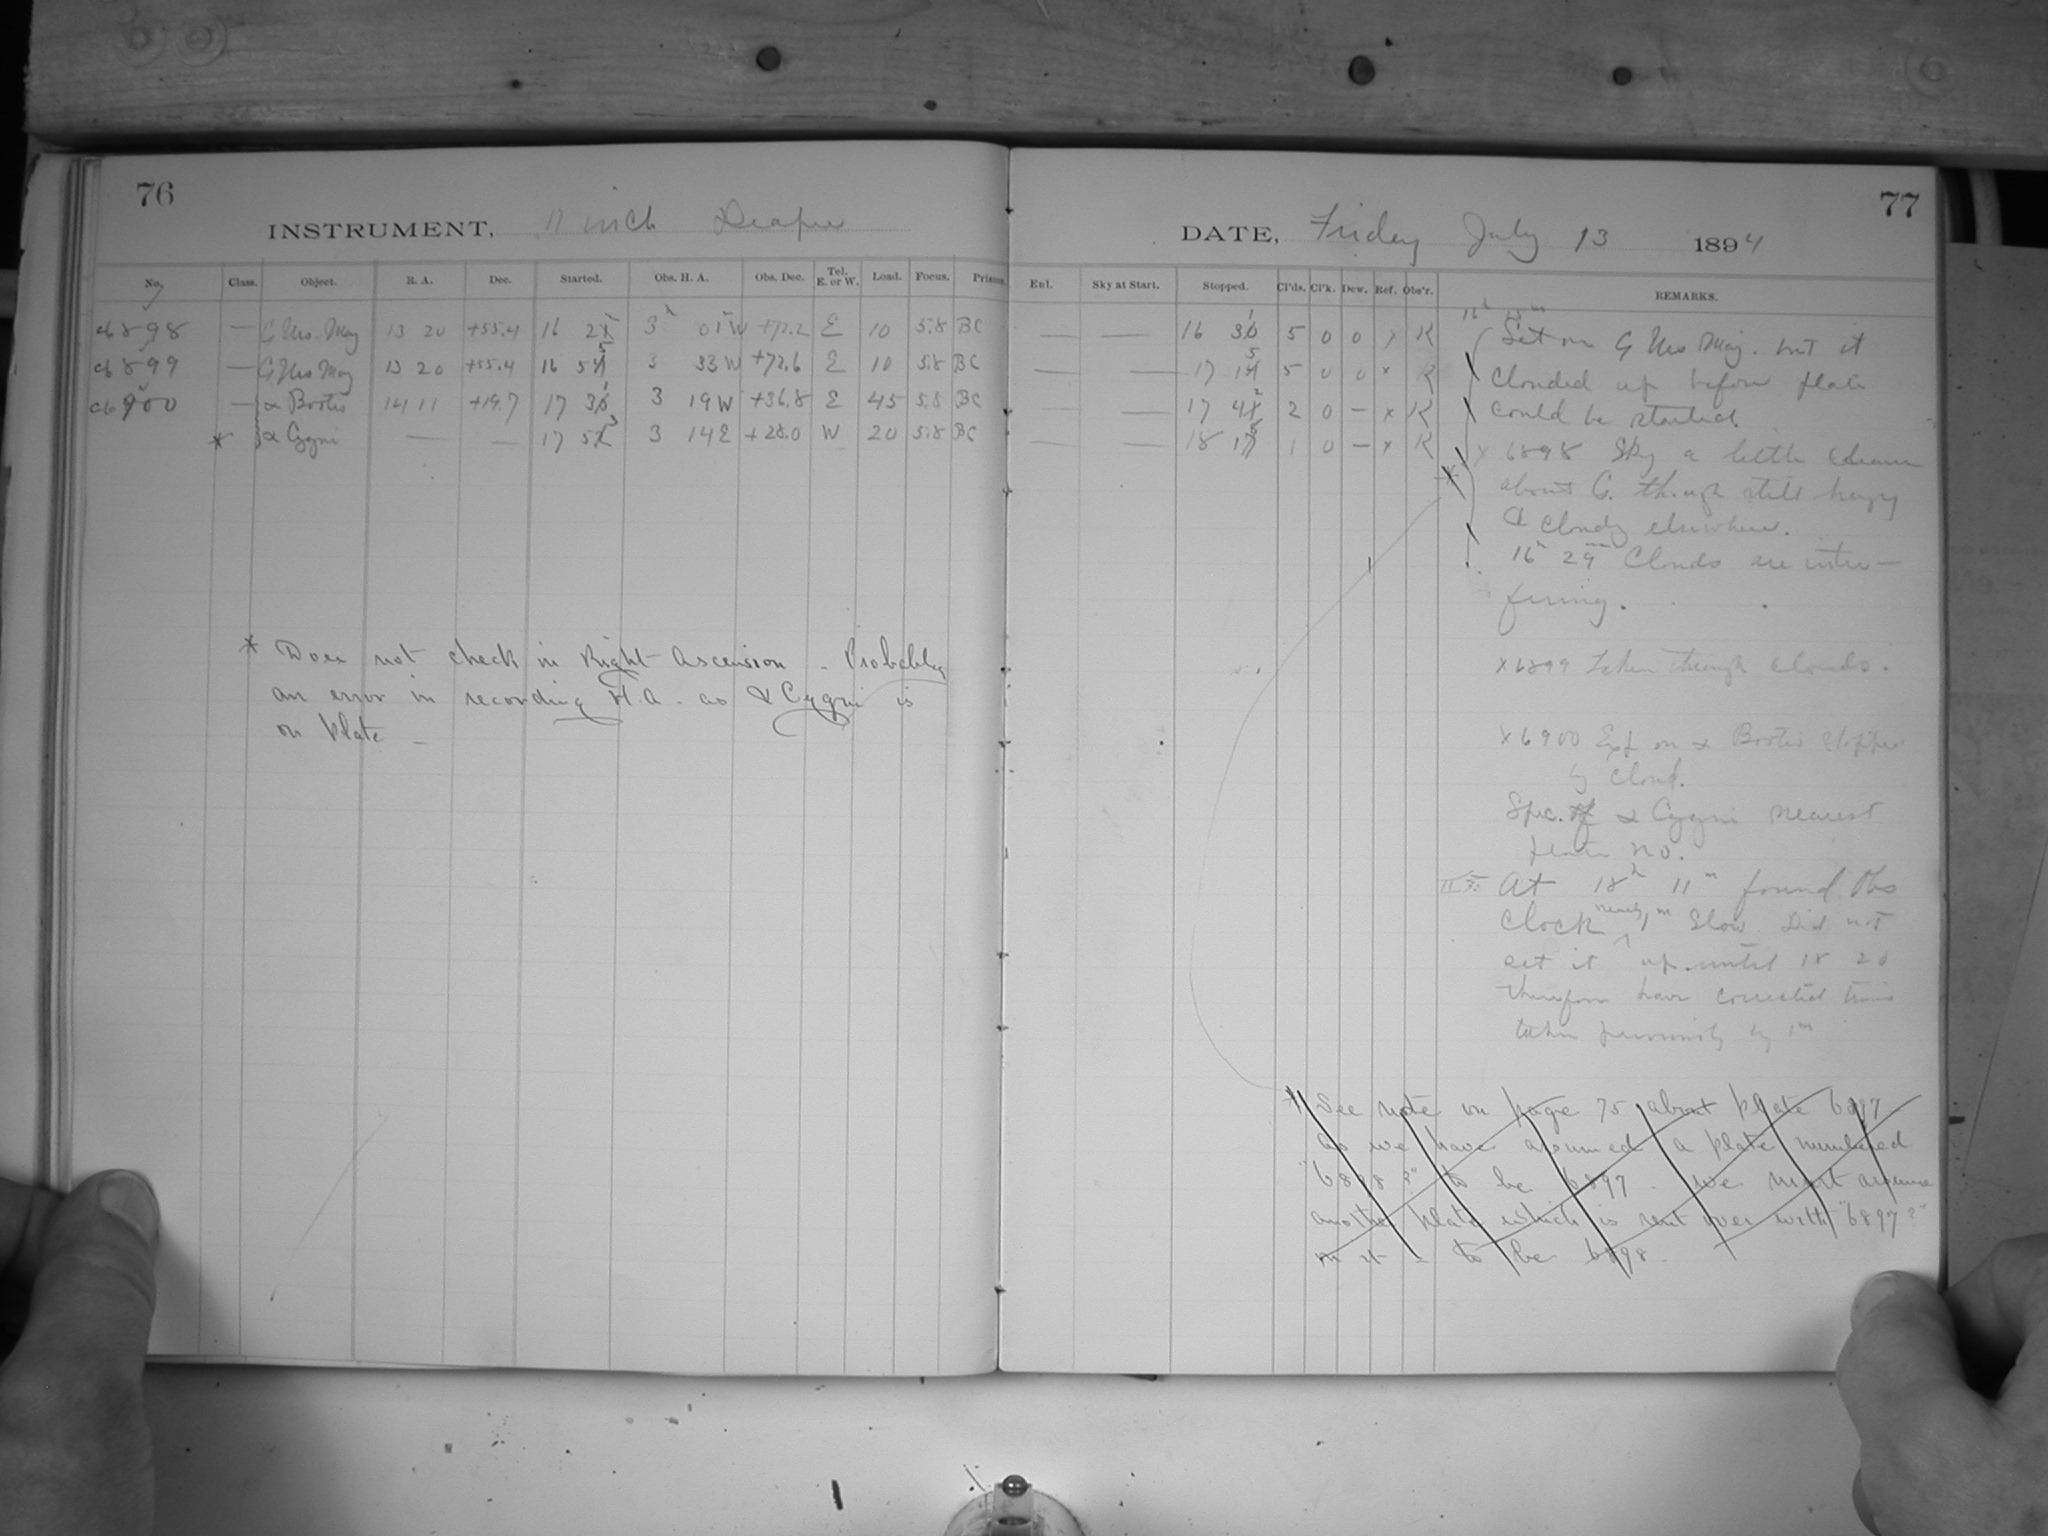 76
INSTRUMENT, 11 inch Draper
No. Class. Object. R. A. Dec. Started. Obs. H. A. Obs. Dec. Tel. E. or W. Load. Focus. Prisms.
6898 — G Urs. Maj 13 20 +55.4 16 2 3h 01 W +72.2 E 10 5.8 BC
6899 — G Urs Maj 13 20 +55.4 16 5 3 33 W +72.6 E 10 5.8 BC
6900 — α Bootis 14 11 +19.7 17 3 3 19 W +36.8 E 45 5.8 BC
* α Cygni — — 17 5 3 14 E +28.0 W 20 5.8 BC
* Does not check in Right Ascension - Probably
an error in recording H.A. as α Cygni is
on plate -
77
DATE, Friday July 13 1894
Enl. Sky at Start. Stopped. Cl'ds. Cl'k. Dew. Ref. Obs'r. REMARKS.
— — 16 3 5 0 0 x K
— — 17 1 5 0 0 x K
— — 17 4 2 0 — x K
— — 18 1 1 0 — x K
Set on G Urs Maj. but it
clouded up before plate
could be started.
x 6898 Sky a little clearer
about G. though still hazy
& cloudy elsewhere.
16h 29m Clouds are inter-
fering.
x 6899 taken through clouds.
x 6900 Exp on α Bootis stopped
by cloud.
Spec. of α Cygni nearest
plate no.
At 18h 11m found Obs
Clock nearly 1m slow. Did not
set it up until 18 20
therefore have corrected times
taken previously by 1m
* See note on page 75 about plate 6897
as we have assumed a plate numbered
"6898?" to be 6897. We must assume
another plate which is sent over with "6897?"
on it - to be 6898.